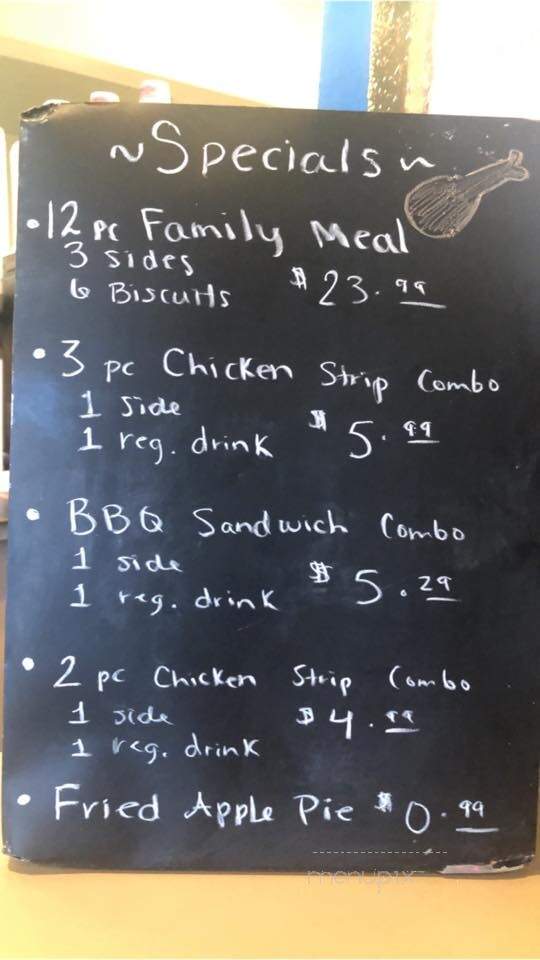 ~Specials~
• 12 pc Family Meal
3 sides
6 Biscuits $23.99
• 3 pc Chicken Strip Combo
1 side
1 reg. drink $5.99
• BBQ Sandwich Combo
1 side
1 reg. drink $5.29
• 2 pc Chicken Strip Combo
1 side $4.99
1 reg. drink
• Fried Apple Pie $0.99
menupix